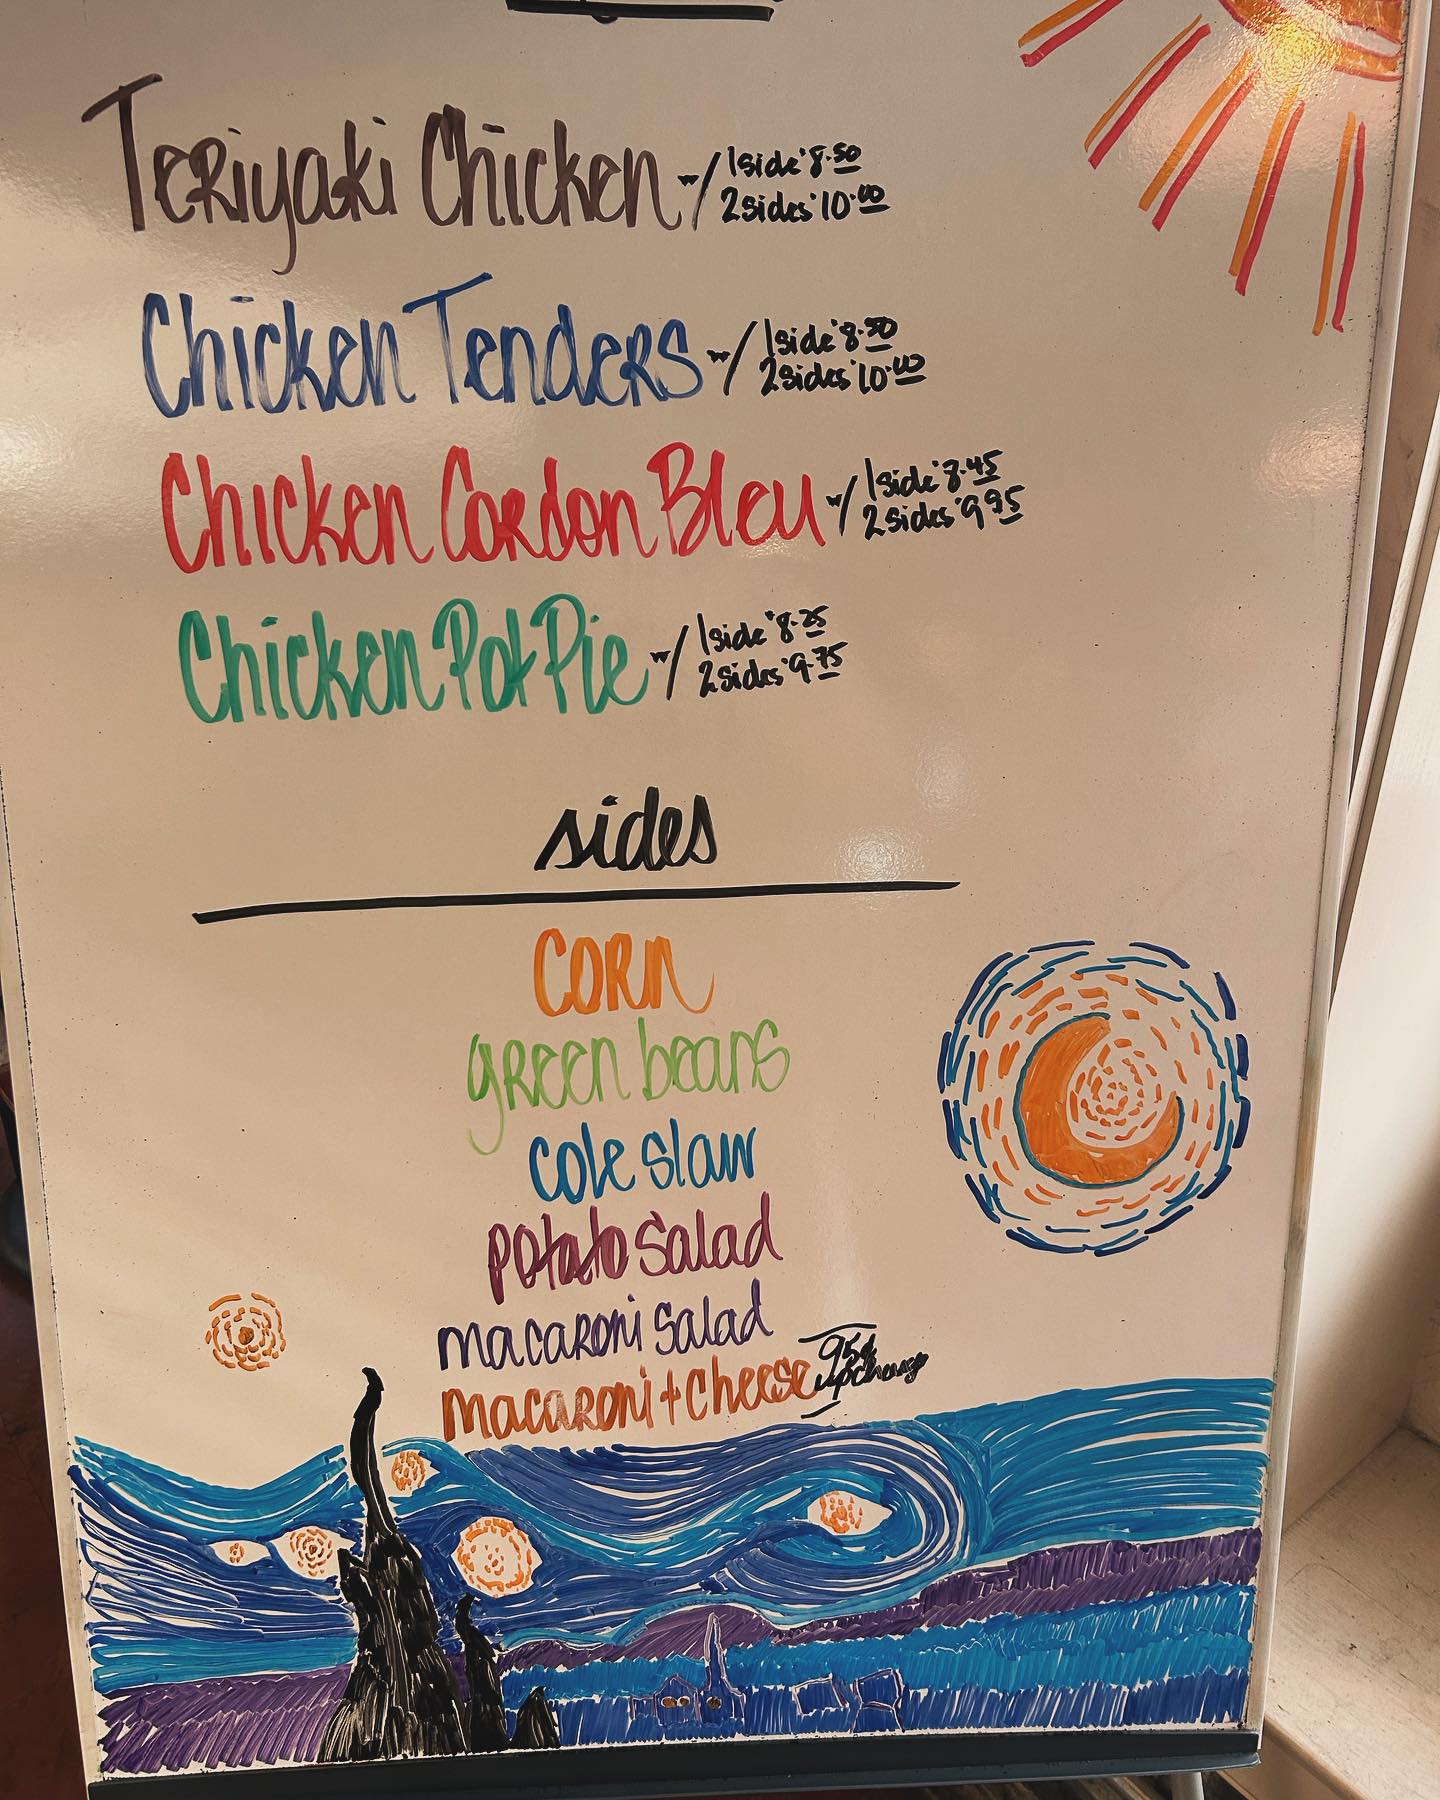 Teriyaki Chicken w/ 1 side $8.50
2 sides $10.00
Chicken Tenders w/ 1 side $8.50
2 sides $10.00
Chicken Cordon Bleu w/ 1 side $8.45
2 sides $9.95
Chicken Pot Pie w/ 1 side $8.25
2 sides $9.75
sides
corn
green beans
cole slaw
potato salad
macaroni salad
macaroni + cheese 95¢
upcharge